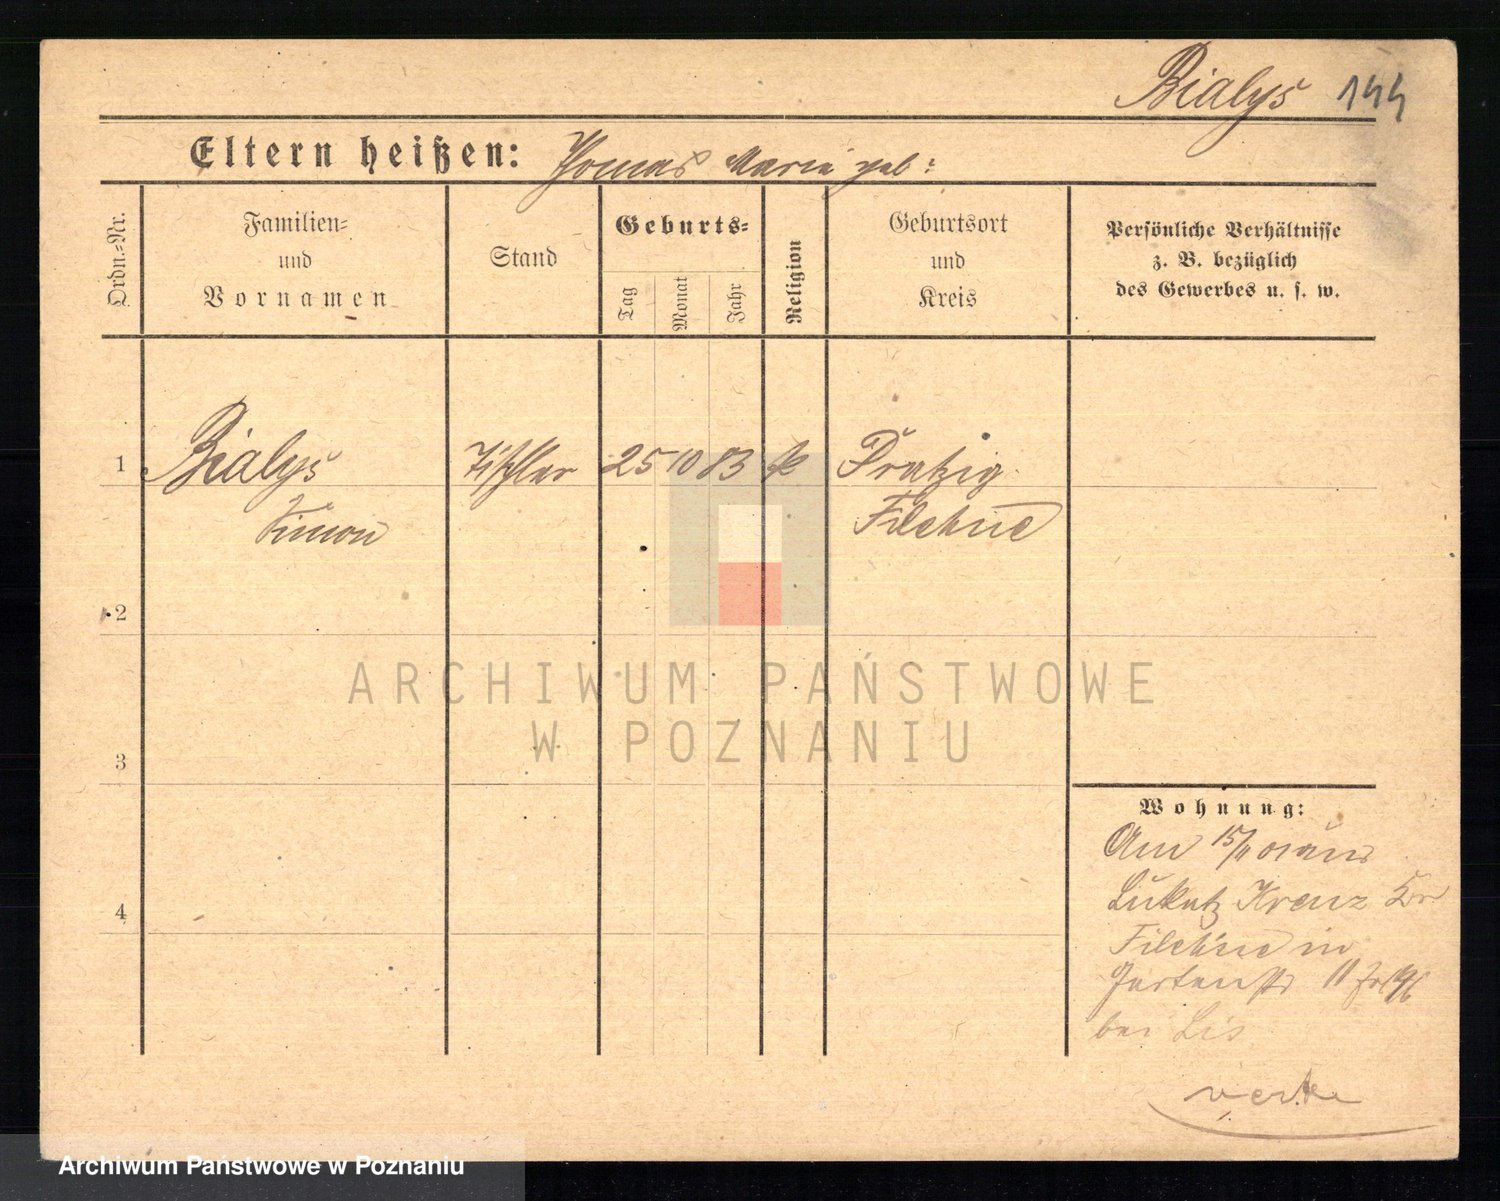 Bialys 144
Eltern heißen: Thomas Marie geb:
Ordn.-Nr.
Familien-
und
Vornamen
Stand
Geburts-
Tag
Monat
Jahr
Religion
Geburtsort
und
Kreis
Persönliche Verhältnisse
z. B. bezüglich
des Gewerbes u. s. w.
1 Bialys Tischler 25 10 83 k Pratzig
Simon Filehne
2
ARCHIWUM PAŃSTWOWE
W POZNANIU
3
Wohnung:
Am 15/11 01 aus
Lukatz Kreuz Kr
4
Filehne in
Gartenstr 11
bei Lis
Archiwum Państwowe w Poznaniu